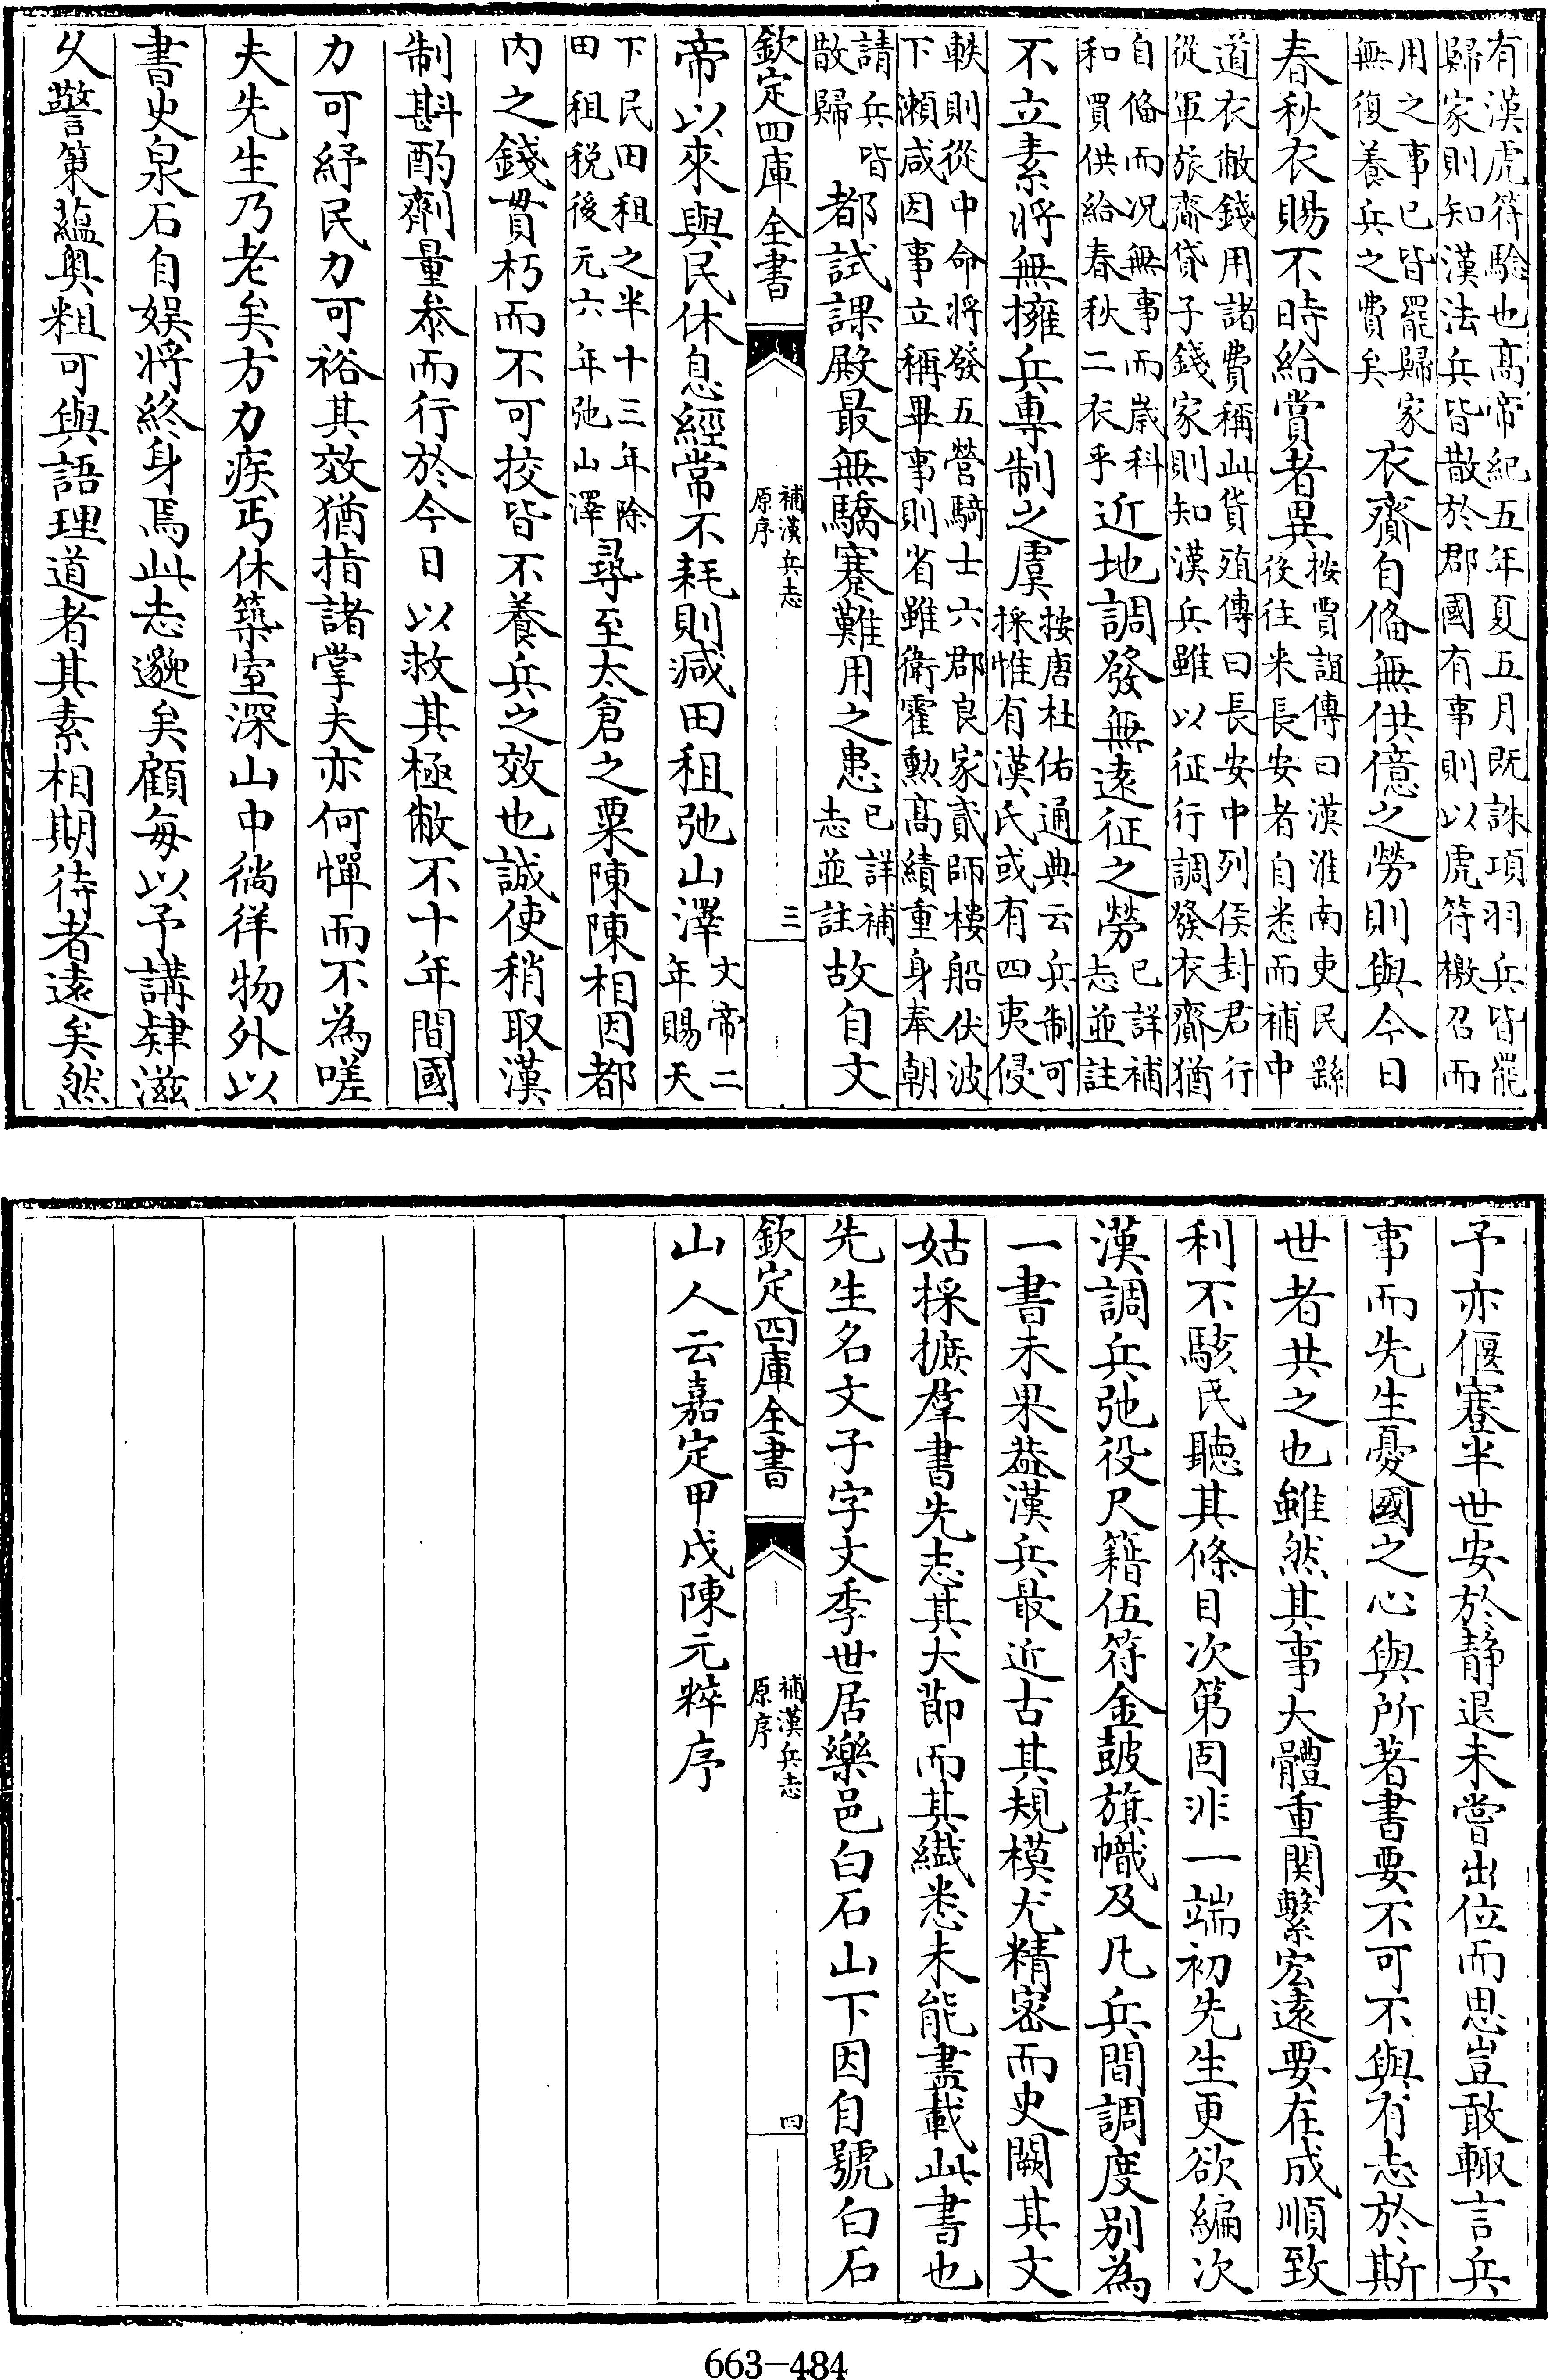 有漢虎符驗也髙帝紀五年夏五月既誅項羽兵皆罷
歸家則知漢法兵皆散於郡國有事則以虎符檄召而
用之事已皆罷歸家
無復養兵之費矣
衣齎自俻無供億之勞則與今日
春秋衣賜不時給賞者異
按賈誼傳曰漢淮南吏民繇
後往来長安者自悉而補中
道衣敝錢用諸費稱此貨殖傳曰長安中列侯封君行
從軍旅齎貸子錢家則知漢兵雖以征行調發衣齎猶
自俻而况無事而嵗科
和買供給春秋二衣乎
近地調發無逺征之勞
已詳補
志並註
不立素將無擁兵專制之虞
按唐杜佑通典云兵制可
採惟有漢氏或有四夷侵
軼則從中命將發五營騎士六郡良家貳師樓船伏波
下瀬咸因事立稱畢事則省雖衛霍勲髙績重身奉朝
請兵皆
散歸
都試課殿最無驕蹇難用之患
已詳補
志並註
故自文
欽定四庫全書
補漢兵志
原序
三
帝以來與民休息經常不耗則減田租弛山澤
文帝二
年賜天
下民田租之半十三年除
田租税後元六年弛山澤
尋至太倉之粟陳陳相因都
内之錢貫朽而不可挍皆不養兵之效也誠使稍取漢
制斟酌劑量叅而行於今日以救其極敝不十年間國
力可紓民力可裕其效猶指諸掌夫亦何憚而不為嗟
夫先生乃老矣方力疾丐休築室深山中徜徉物外以
書史泉石自娱將終身焉此志邈矣顧毎以予講肄滋
乆警策藴奥粗可與語理道者其素相期待者逺矣然
予亦偃蹇半世安於静退未嘗出位而思豈敢輙言兵
事而先生憂國之心與所著書要不可不與有志於斯
世者共之也雖然其事大體重関繫宏逺要在成順致
利不駭民聽其條目次第固非一端初先生更欲編次
漢調兵弛役尺籍伍符金鼓旗幟及凡兵間調度别為
一書未果葢漢兵最近古其規模尤精密而史闕其文
姑採摭羣書先志其大莭而其纎悉未能盡載此書也
先生名文子字文季世居樂邑白石山下因自號白石
欽定四庫全書
補漢兵志
原序
四
山人云嘉定甲戌陳元粹序
663-484